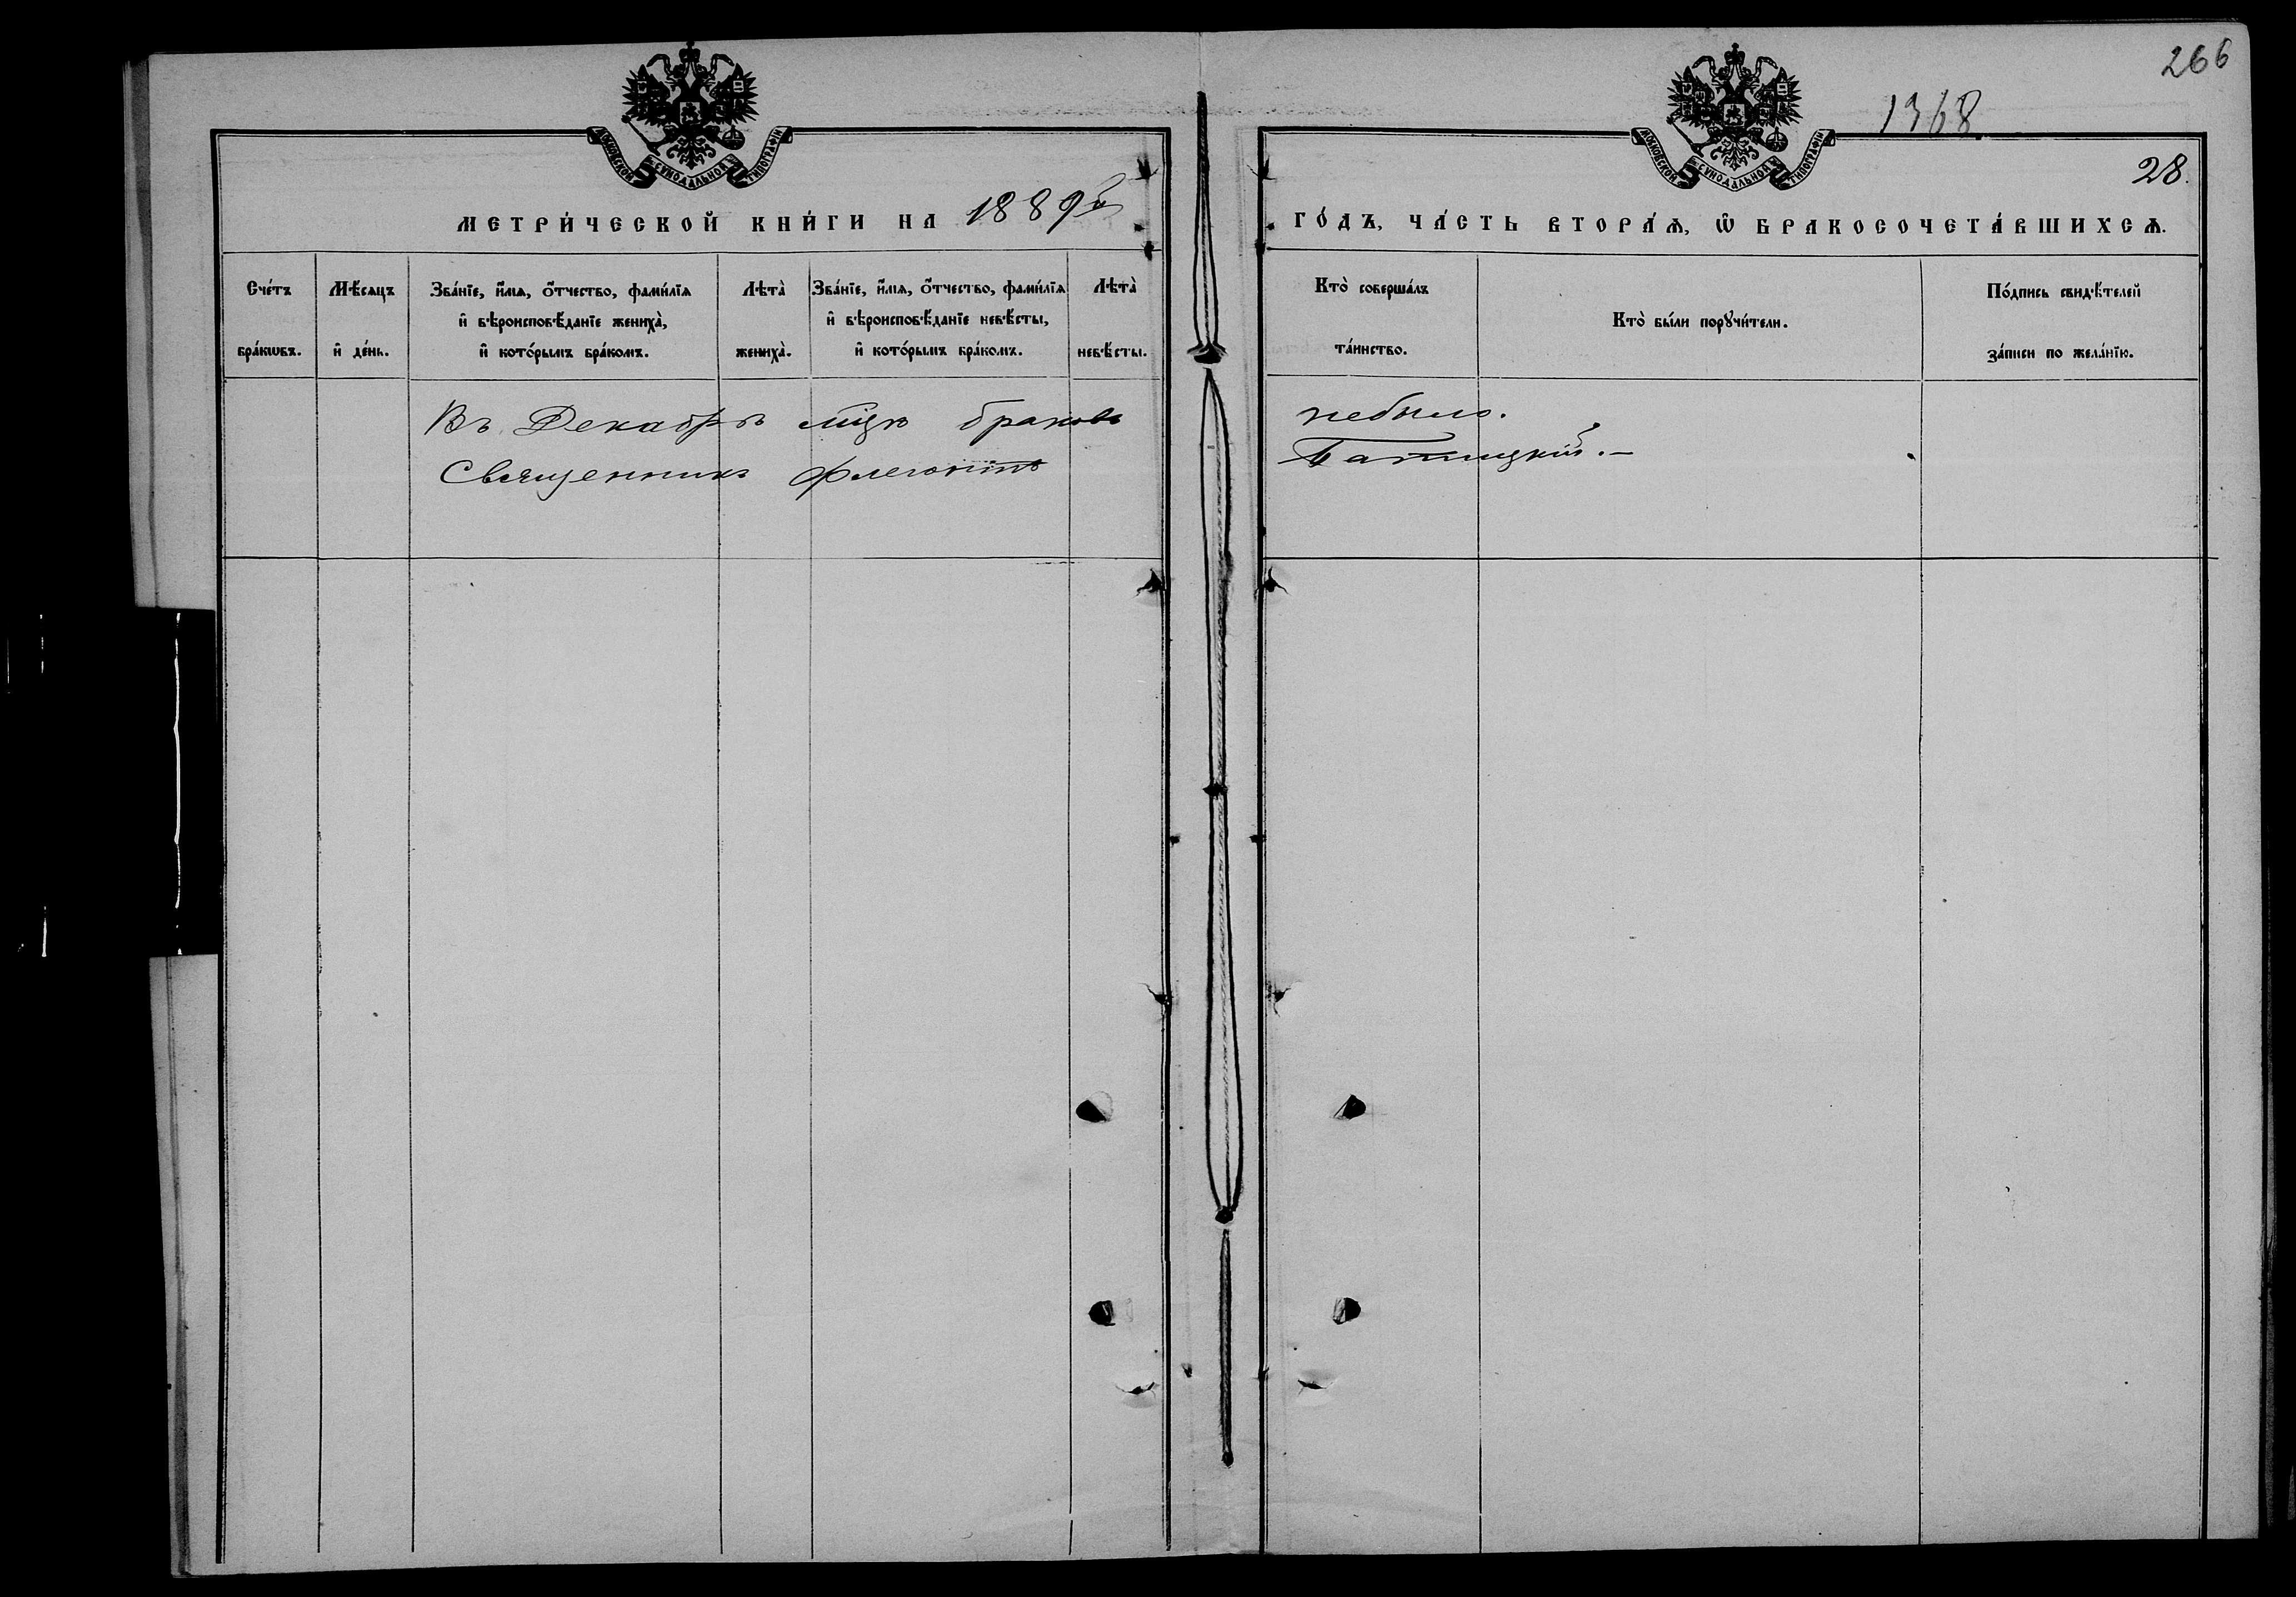 266
1368
28.
МОСКОВСКОЙ СѴНОДАЛЬНОЙ ТИПОГРАФІИ
МОСКОВСКОЙ СѴНОДАЛЬНОЙ ТИПОГРАФІИ
МЕТРИ́ЧЕСКОЙ КНИ́ГИ НА 1889й
ГО́ДЪ, ЧА́СТЬ ВТОРА́Ѧ, Ѽ БРАКОСОЧЕТА́ВШИХСѦ.
Сче́тъ бра́кѡвъ.
Мѣ́сяцъ и҆ де́нь.
Зва́нїе, и҆́мя, ѻ҆́тчество, фами́лїя и҆ вѣроисповѣ́данїе жениха̀, и҆ кото́рымъ бра́комъ.
Лѣта̀ жениха̀.
Зва́нїе, и҆́мя, ѻ҆́тчество, фами́лїя и҆ вѣроисповѣ́данїе невѣ́сты, и҆ кото́рымъ бра́комъ.
Лѣта̀ невѣ́сты.
Кто̀ соверша́лъ та́инство.
Кто̀ бы́ли порꙋчи́тели.
По́дпись свидѣ́телей за́писи по жела́нїю.
Въ Декабрѣ мцѣ браковъ небыло.
Священникъ Флегонтъ